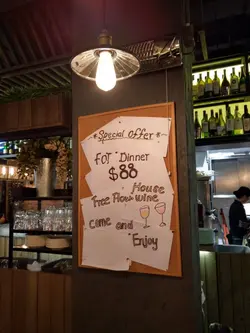 *Special Offer*
FOT Dinner
$88
House
Free Flow wine
come and
Enjoy